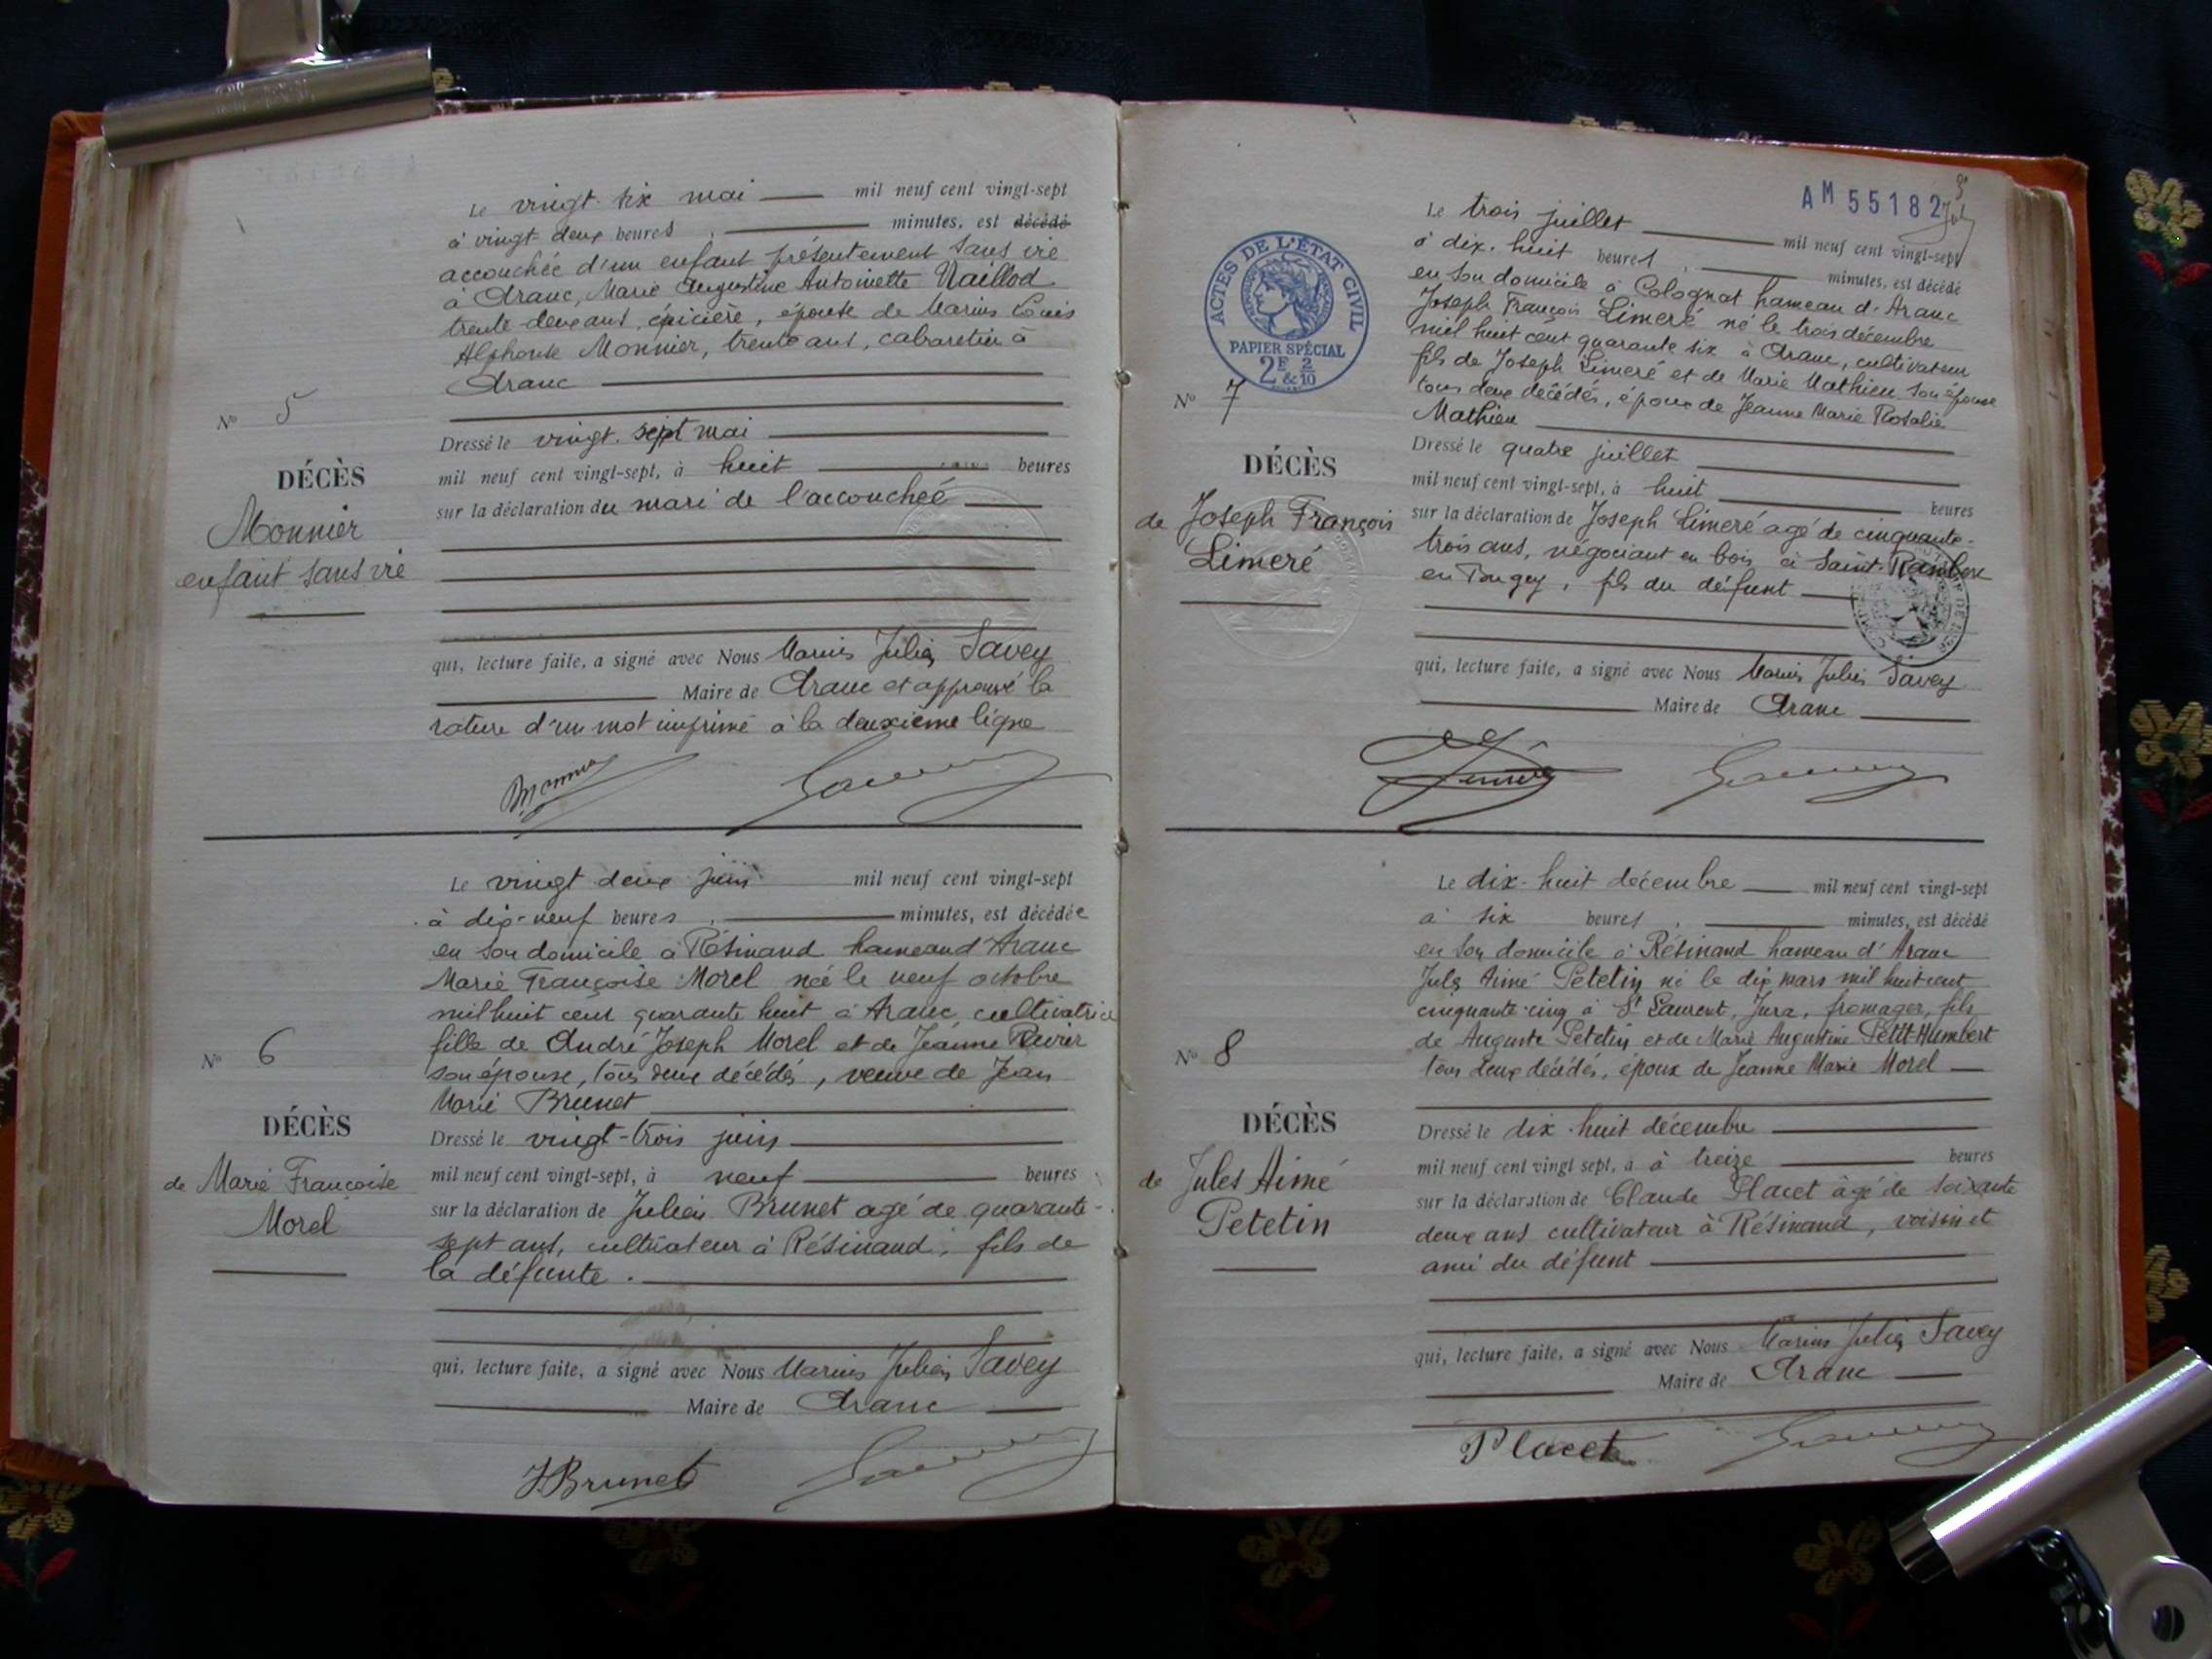 Le vingt-six mai mil neuf cent vingt-sept
à vingt-deux heures, minutes, est décédé
accouchée d'un enfant présentement sans vie
à Aranc, Marie Augustine Antoinette Naillod
trente-deux ans, épicière, épouse de Marius Louis
Alphonse Monnier, trente ans, cabaretier à
Aranc
No 5
DÉCÈS
Monnier
enfant sans vie
Dressé le vingt-sept mai
mil neuf cent vingt-sept, à huit heures
sur la déclaration du mari de l'accouchée
qui, lecture faite, a signé avec Nous Marius Julien Savey
Maire de Aranc et approuvé la
rature d'un mot imprimé à la deuxième ligne
Monnier
Le vingt deux juin mil neuf cent vingt-sept
à dix-neuf heures, minutes, est décédée
en son domicile à Résinand hameau d'Aranc
Marie Françoise Morel née le neuf octobre
mil huit cent quarante huit à Aranc, cultivatrice
fille de André Joseph Morel et de Jeanne Ravier
son épouse, tous deux décédés, veuve de Jean
Marie Brunet
No 6
DÉCÈS
de Marie Françoise
Morel
Dressé le vingt-trois juin
mil neuf cent vingt-sept, à neuf heures
sur la déclaration de Julien Brunet agé de quarante-
sept ans, cultivateur à Résinand, fils de
la défunte.
qui, lecture faite, a signé avec Nous Marius Julien Savey
Maire de Aranc
J. Brunet
AM 55182
ACTES DE L'ÉTAT CIVIL
PAPIER SPÉCIAL
2F & 2/10
Le trois juillet mil neuf cent vingt-sept
à dix-huit heures, minutes, est décédé
en son domicile à Colognat hameau d'Aranc
Joseph François Limeré né le trois décembre
mil huit cent quarante six à Aranc, cultivateur
fils de Joseph Limeré et de Marie Mathieu son épouse
tous deux décédés, époux de Jeanne Marie Rosalie
Mathieu
No 7
DÉCÈS
de Joseph François
Limeré
Dressé le quatre juillet
mil neuf cent vingt-sept, à huit heures
sur la déclaration de Joseph Limeré agé de cinquante-
trois ans, négociant en bois à Saint-Rambert
en Bugey, fils du défunt
qui, lecture faite, a signé avec Nous Marius Julien Savey
Maire de Aranc
Le dix-huit décembre mil neuf cent vingt-sept
à six heures, minutes, est décédé
en son domicile à Résinand hameau d'Aranc
Jules Aimé Petetin né le dix mars mil huit cent
cinquante-cinq à St Laurent, Jura, fromager, fils
de Auguste Petetin et de Marie Augustine Petit-Humbert
tous deux décédés, époux de Jeanne Marie Morel
No 8
DÉCÈS
de Jules Aimé
Petetin
Dressé le dix-huit décembre
mil neuf cent vingt sept, à à treize heures
sur la déclaration de Claude Placet âgé de soixante
deux ans cultivateur à Résinand, voisin et
ami du défunt
qui, lecture faite, a signé avec Nous Marius Julien Savey
Maire de Aranc
Placet